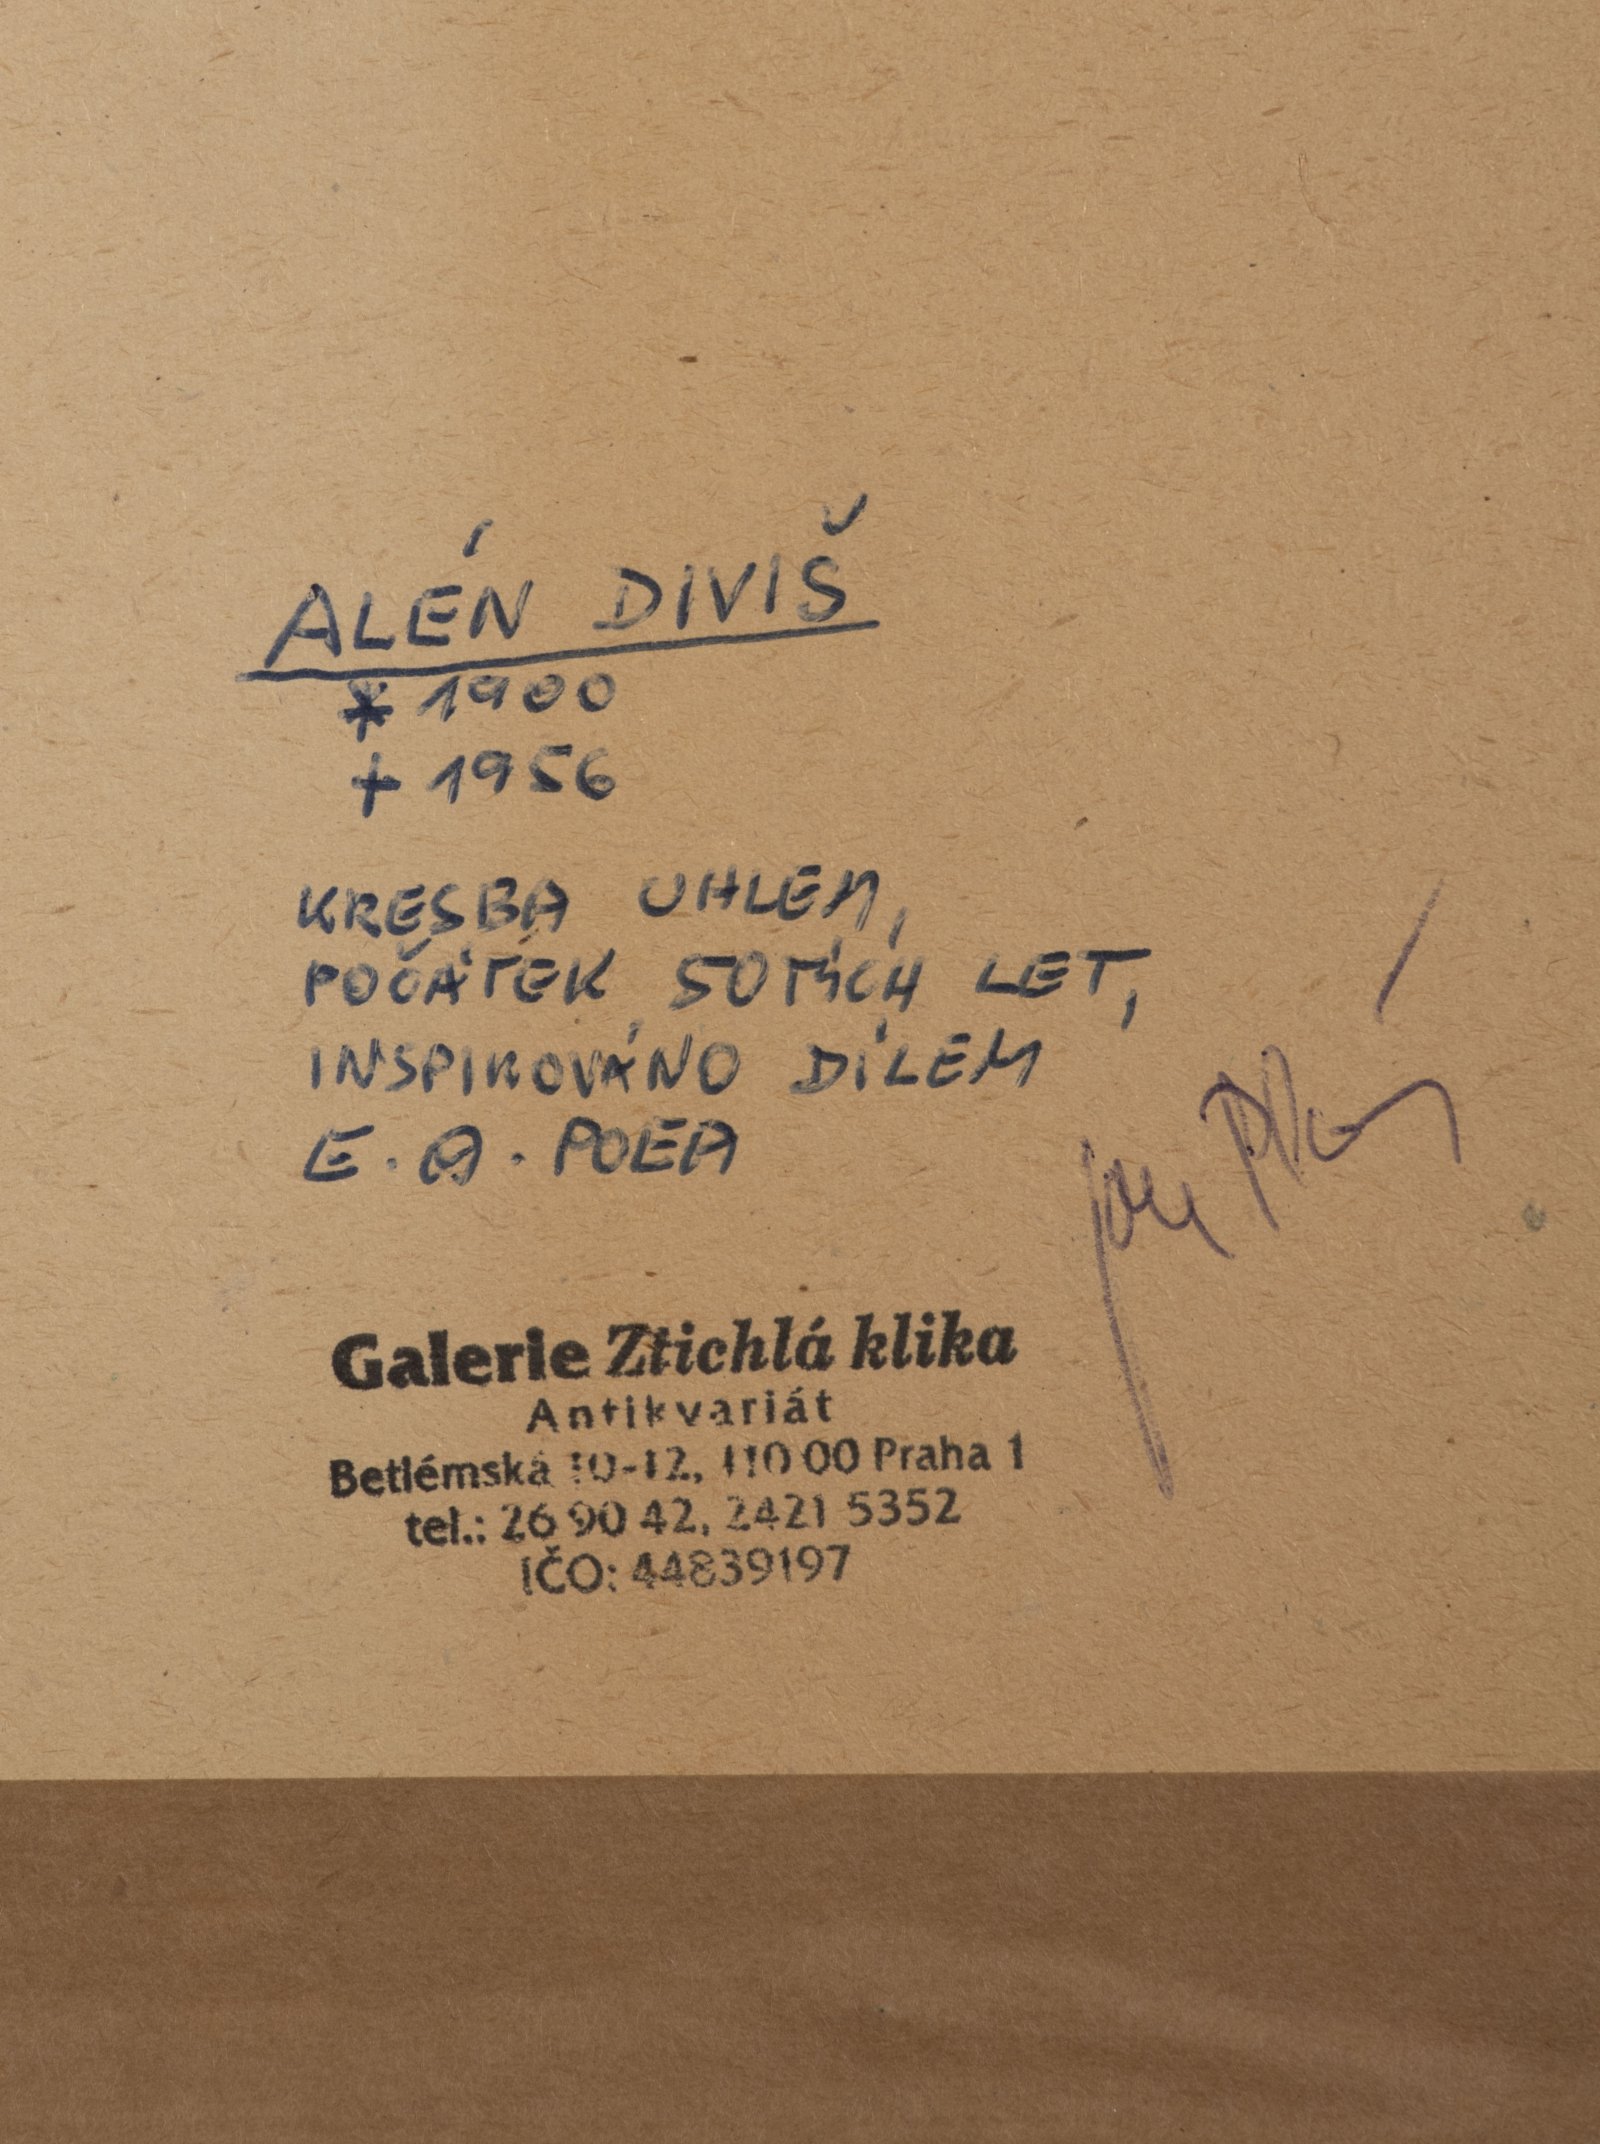 ALÉN DIVIŠ
* 1900
+ 1956
KRESBA UHLEM,
POČÁTEK 50TÝCH LET,
INSPIROVÁNO DÍLEM
E. A. POEA
Galerie Ztichlá klika
Antikvariát
Betlémská 10-12, 110 00 Praha 1
tel.: 26 90 42, 2421 5352
IČO: 44839197